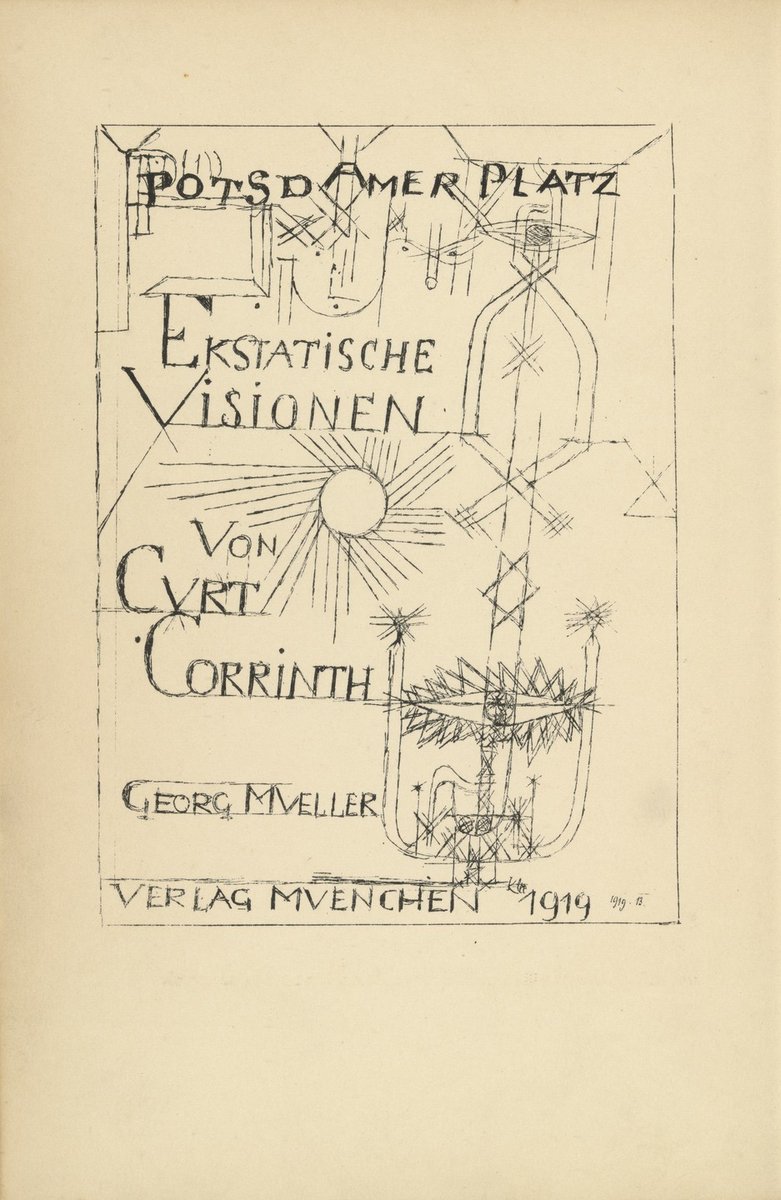 POTSDAMER PLATZ
EKSTATISCHE
VISIONEN
VON
CVRT
CORRINTH
GEORG MVELLER
VERLAG MVENCHEN 1919
Klee
1919. 13